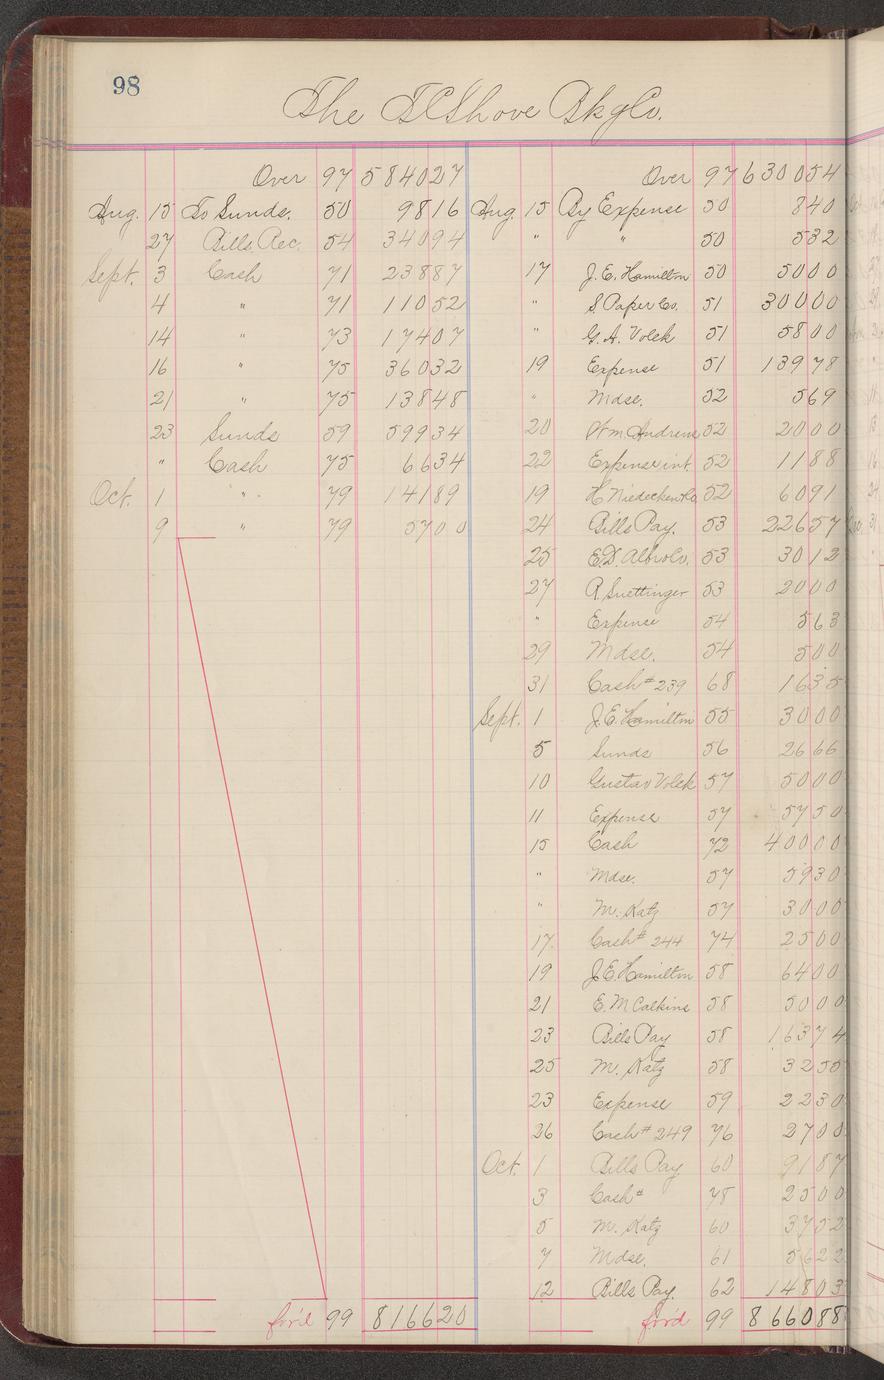 98
The T.C. Shove Bkg Co.
Over 97 584027
Aug. 15 To Sunds. 50 9816
27 Bills Rec. 54 34094
Sept. 3 Cash 71 23887
4 " 71 11052
14 " 73 17407
16 " 75 36032
21 " 75 13848
23 Sunds 59 59934
" Cash 75 6634
Oct. 1 " 79 14189
9 " 79 5700
for'd 99 816620
Over 97 630054
Aug. 15 By Expense 50 840
" " 50 532
17 J.E. Hamilton 50 5000
" S. Paper Co. 51 30000
" G.A. Volek 51 5800
19 Expense 51 13978
" Mdse. 52 569
20 Wm Andrews 52 2000
22 Expense int. 52 1188
19 H. Niedecken Co. 52 6091
24 Bills Pay. 53 22657
25 E.D. Albro Co. 53 3012
27 R. Suettinger 53 2000
" Expense 54 563
29 Mdse. 54 500
31 Cash # 239 68 1635
Sept. 1 J.E. Hamilton 55 3000
5 Sunds 56 2666
10 Gustav Volek 57 5000
11 Expense 57 5750
15 Cash 72 40000
" Mdse. 57 5930
" M. Katz 57 3000
17 Cash # 244 74 2500
19 J.E. Hamilton 58 6400
21 E.M. Calkins 58 5000
23 Bills Pay 58 16374
25 M. Katz 58 3255
23 Expense 59 2230
26 Cash # 249 76 2700
Oct. 1 Bills Pay 60 9187
3 Cash # 78 2500
5 M. Katz 60 3752
7 Mdse. 61 5622
12 Bills Pay. 62 14803
for'd 99 866088